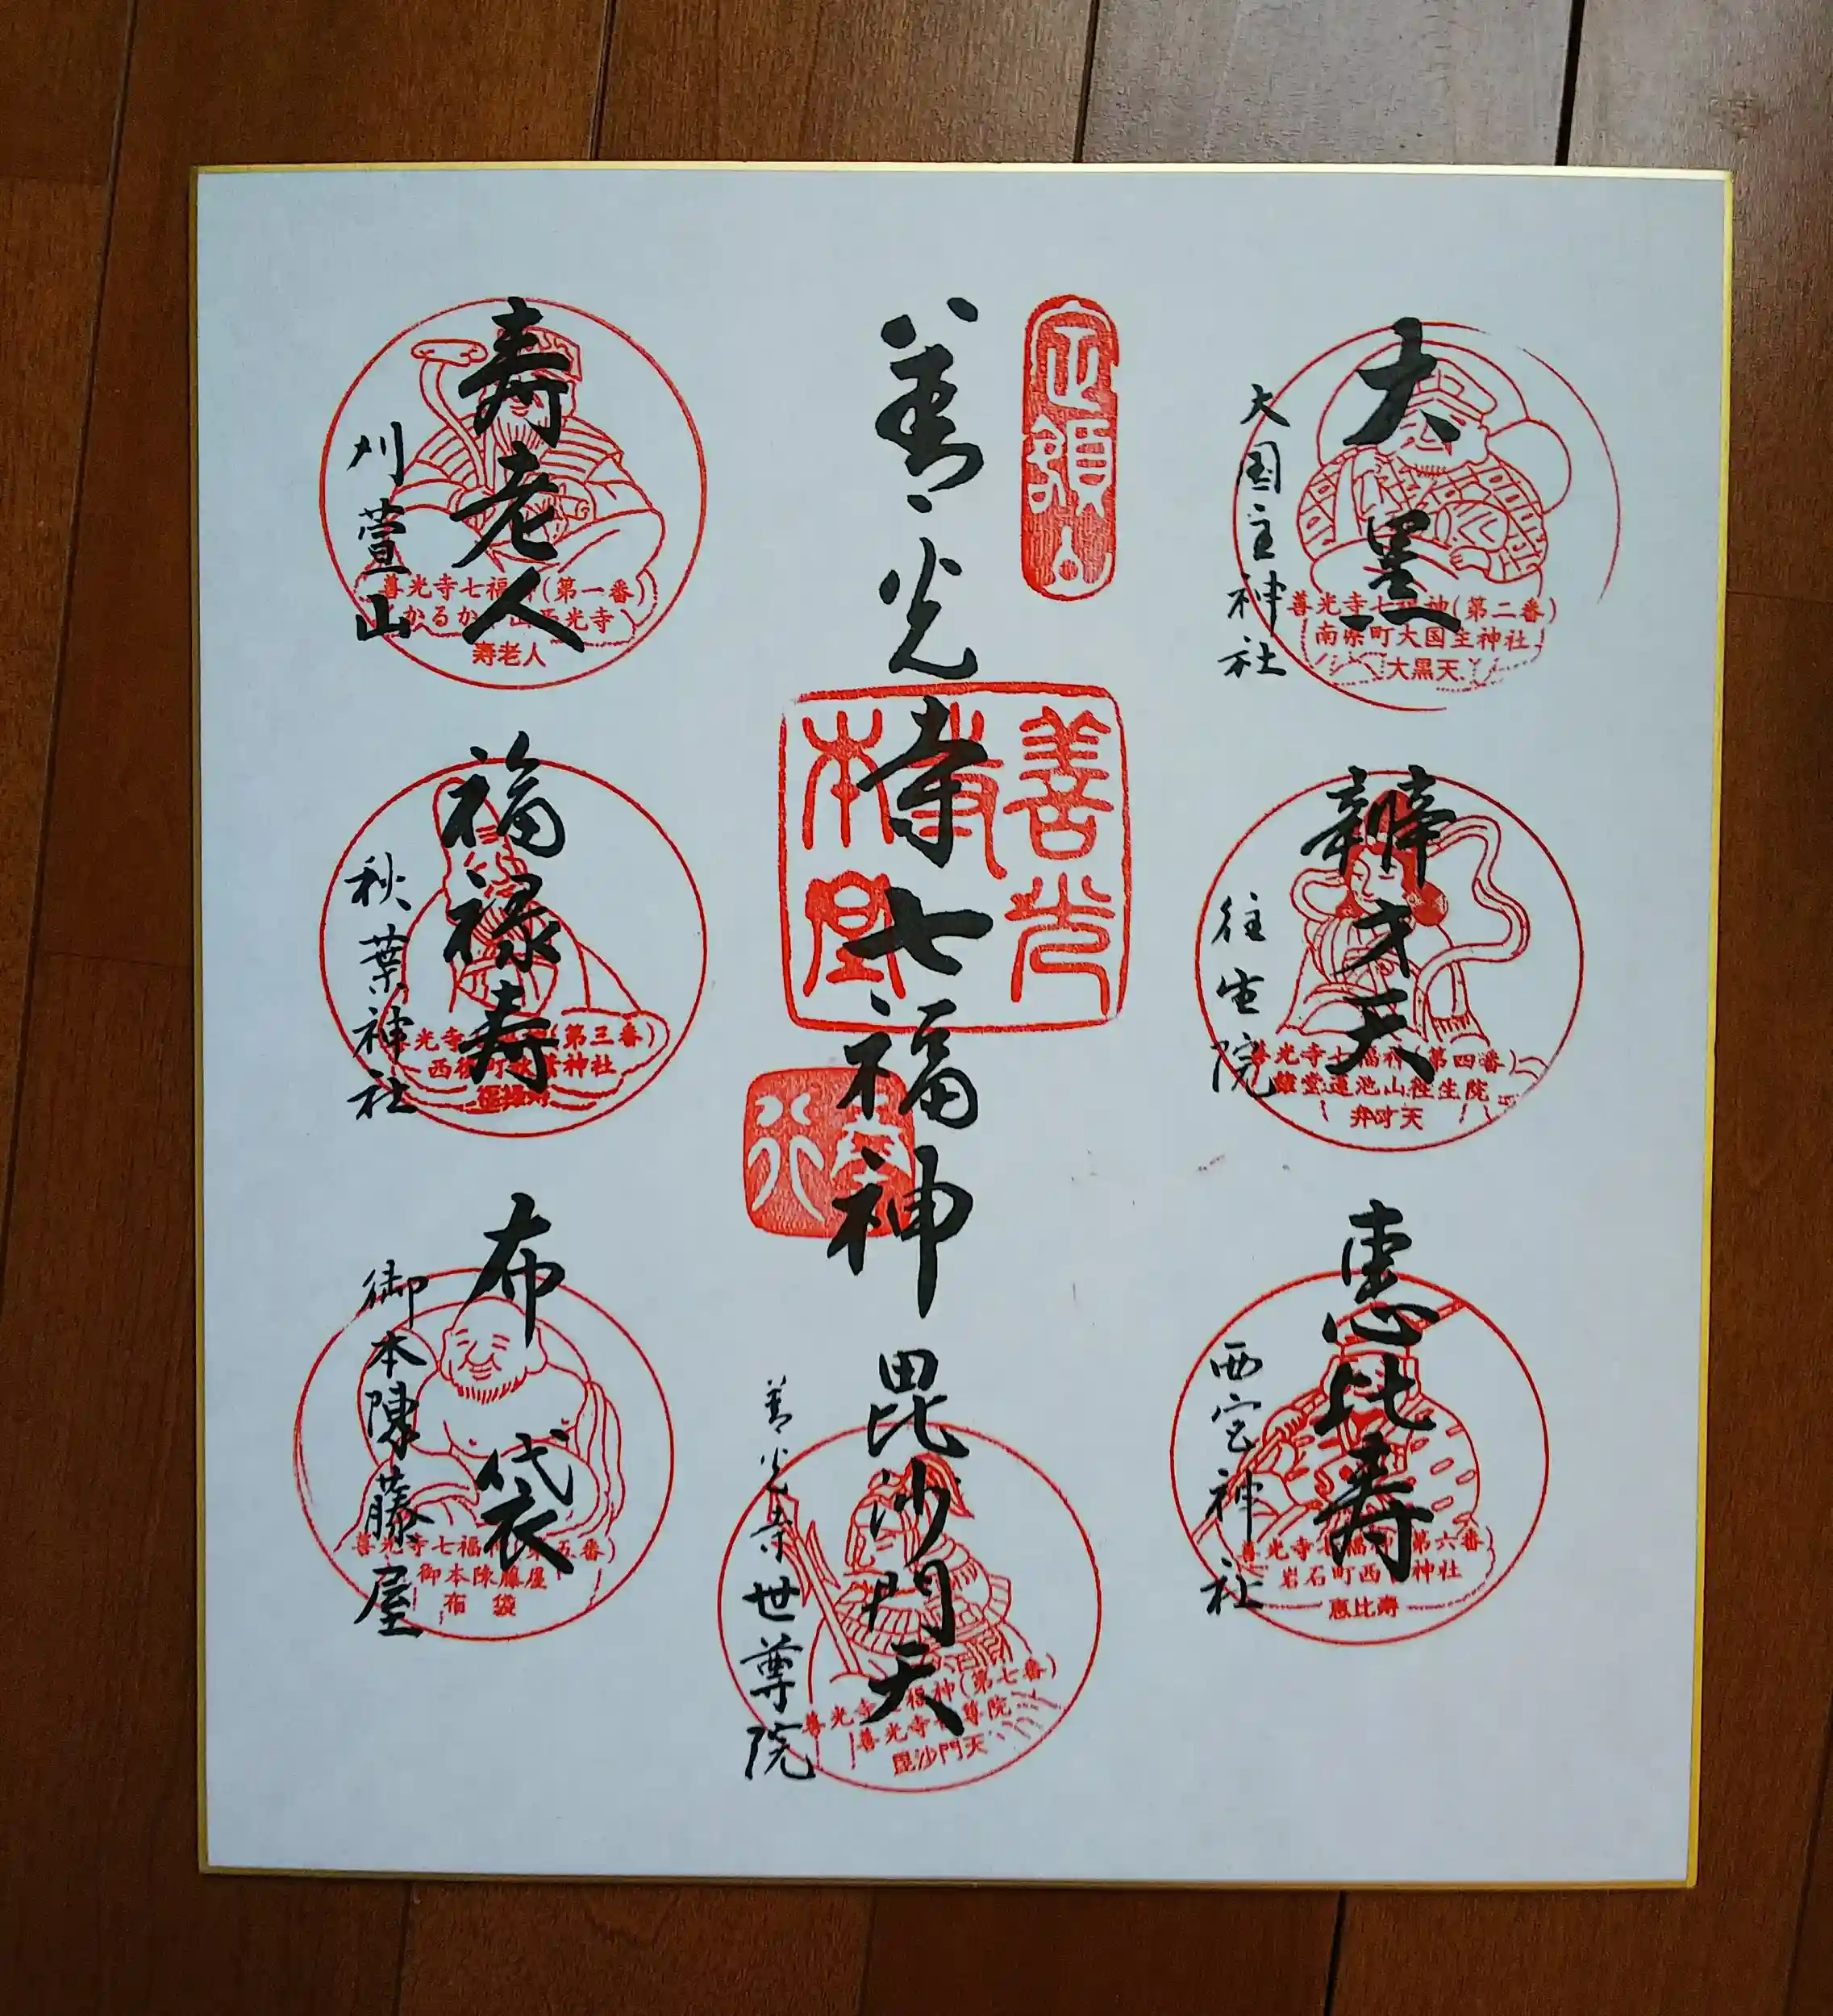 大黒
大国主神社
善光寺七福神(第二番)
南県町大国主神社
大黒天
辨才天
往生院
善光寺七福神(第四番)
蓮池山往生院
弁才天
恵比寿
西宮神社
善光寺七福神(第六番)
岩石町西宮神社
恵比寿
定額山
善光寺七福神
善光寺本堂
毘沙門天
善光寺世尊院
善光寺七福神(第七番)
善光寺世尊院
毘沙門天
寿老人
刈萱山
善光寺七福神(第一番)
かるかや山西光寺
寿老人
福禄寿
秋葉神社
善光寺七福神(第三番)
西後町秋葉神社
福禄寿
布袋
御本陳藤屋
善光寺七福神(第五番)
御本陳藤屋
布袋